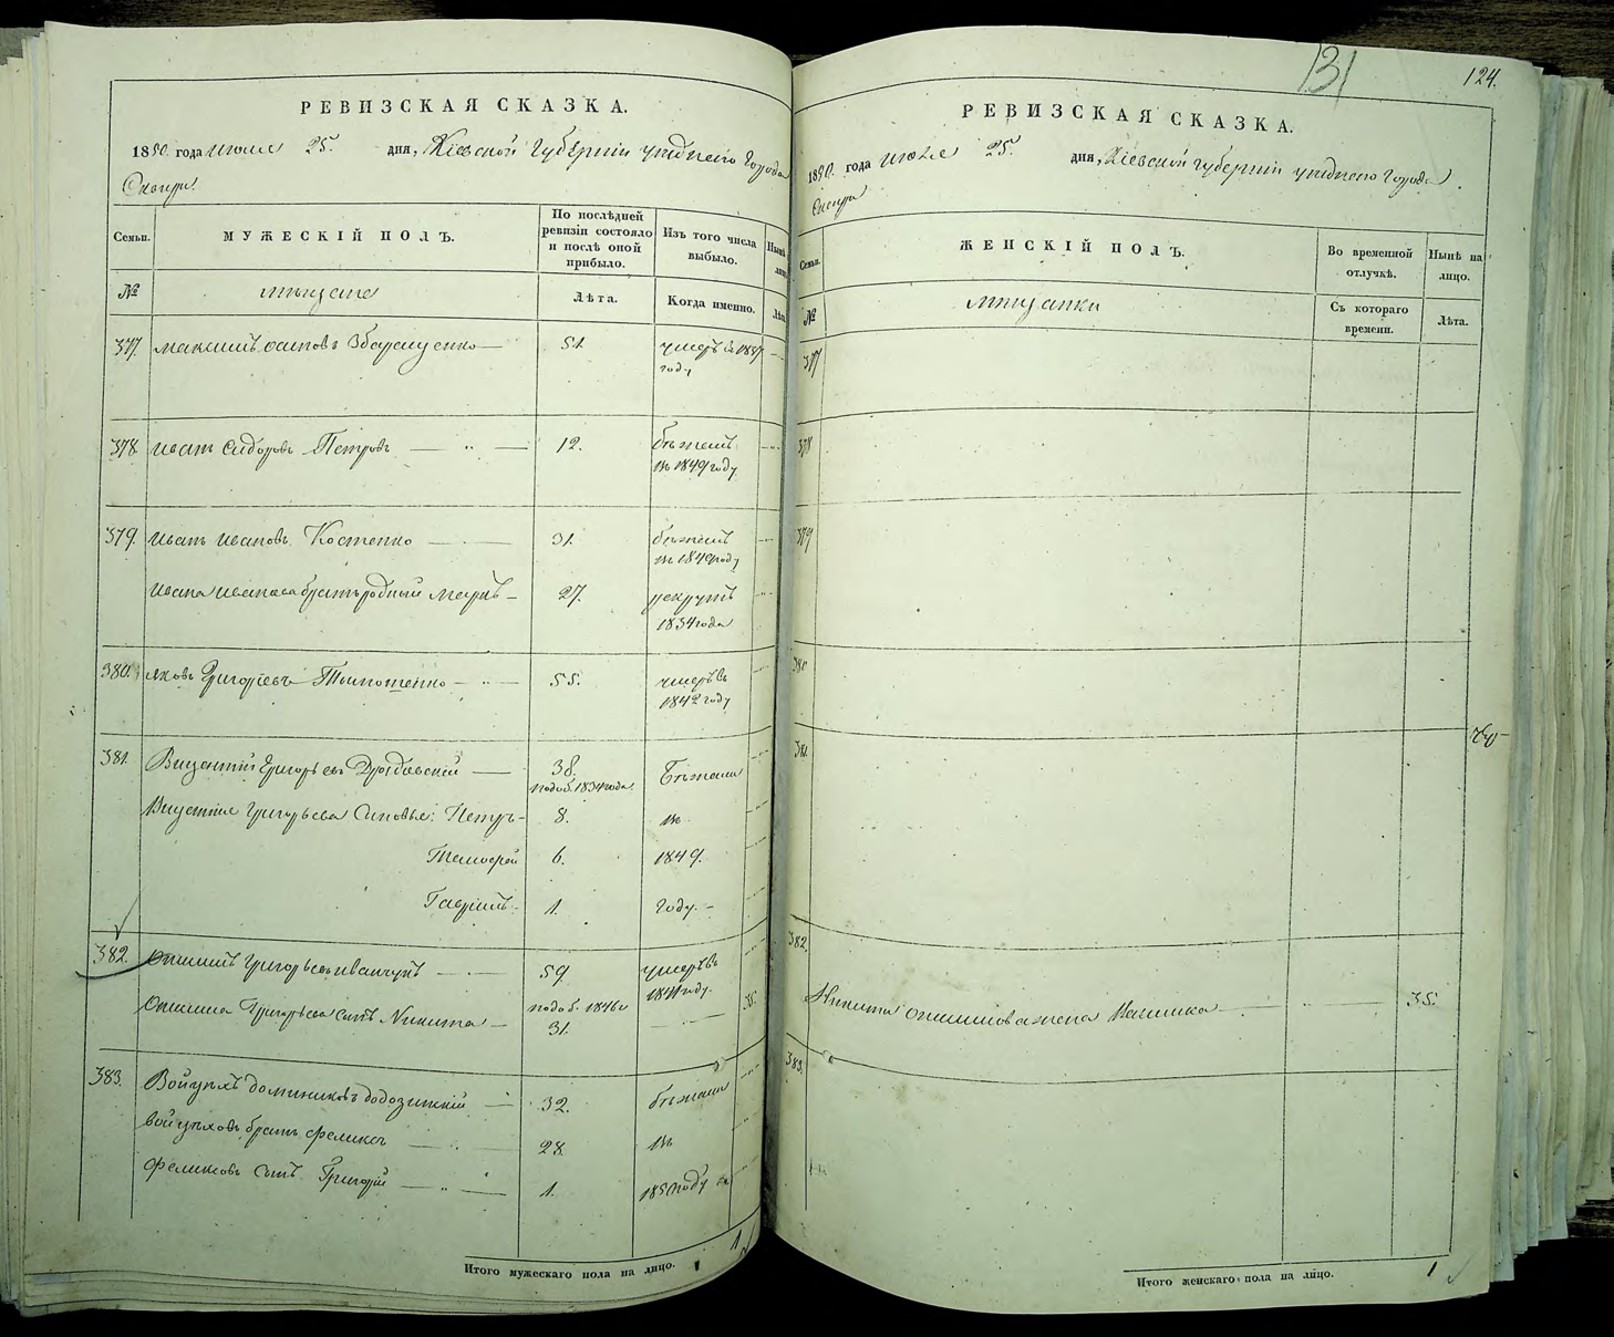 РЕВИЗСКАЯ СКАЗКА.
1850. года июля 25. дня, Кіевской Губерніи уѣзднаго города
Сквиры.
Семьи. МУЖЕСКІЙ ПОЛЪ. По послѣдней ревизіи состояло и послѣ оной прибыло. Изъ того числа выбыло. Нынѣ
№ мѣщане Лѣта. Когда именно. Лѣта
377. Максимъ осиповъ Збаращенко 51. умеръ въ 1837
году
378. Иванъ Сидоровъ Петровъ 12. бѣжалъ
въ 1849 году
379. Иванъ Ивановъ Костенко 31. бѣжалъ
въ 1849 году
Ивана Иванова братъ родный 27. рекрутъ
1834 года
380. Яковъ Григорьевъ Тимошенко 55. умеръ въ
1842 году
381. Викентій Григорьевъ 38. Бѣжали
подоб. 1834 года
Викентія Григорьева Сыновья: Петръ 8. въ
Тимофей 6. 1849.
Гаврiилъ 1. году.
382. Онисимъ Григорьевъ Иванчукъ 59. умеръ въ
1841 году.
Онисима Григорьева сынъ Никита подоб. 1846
31. 35.
383. Войцѣхъ доминиковъ 32. бѣжали
войцѣховъ братъ феликсъ 28. въ
феликсовъ сынъ Григорій 1. 1850 году
Итого мужескаго пола на лицо. 1
1
131
124.
РЕВИЗСКАЯ СКАЗКА.
1850. года июля 25. дня, Кіевской губерніи уѣзднаго города
Сквиры
Семьи. ЖЕНСКІЙ ПОЛЪ. Во временной отлучкѣ. Нынѣ на лицо.
№ мѣщанки Съ котораго времени. Лѣта.
377
378
379
380
381.
382.
Никиты Онисимова жена 35.
383.
Итого женскаго пола на лицо. 1